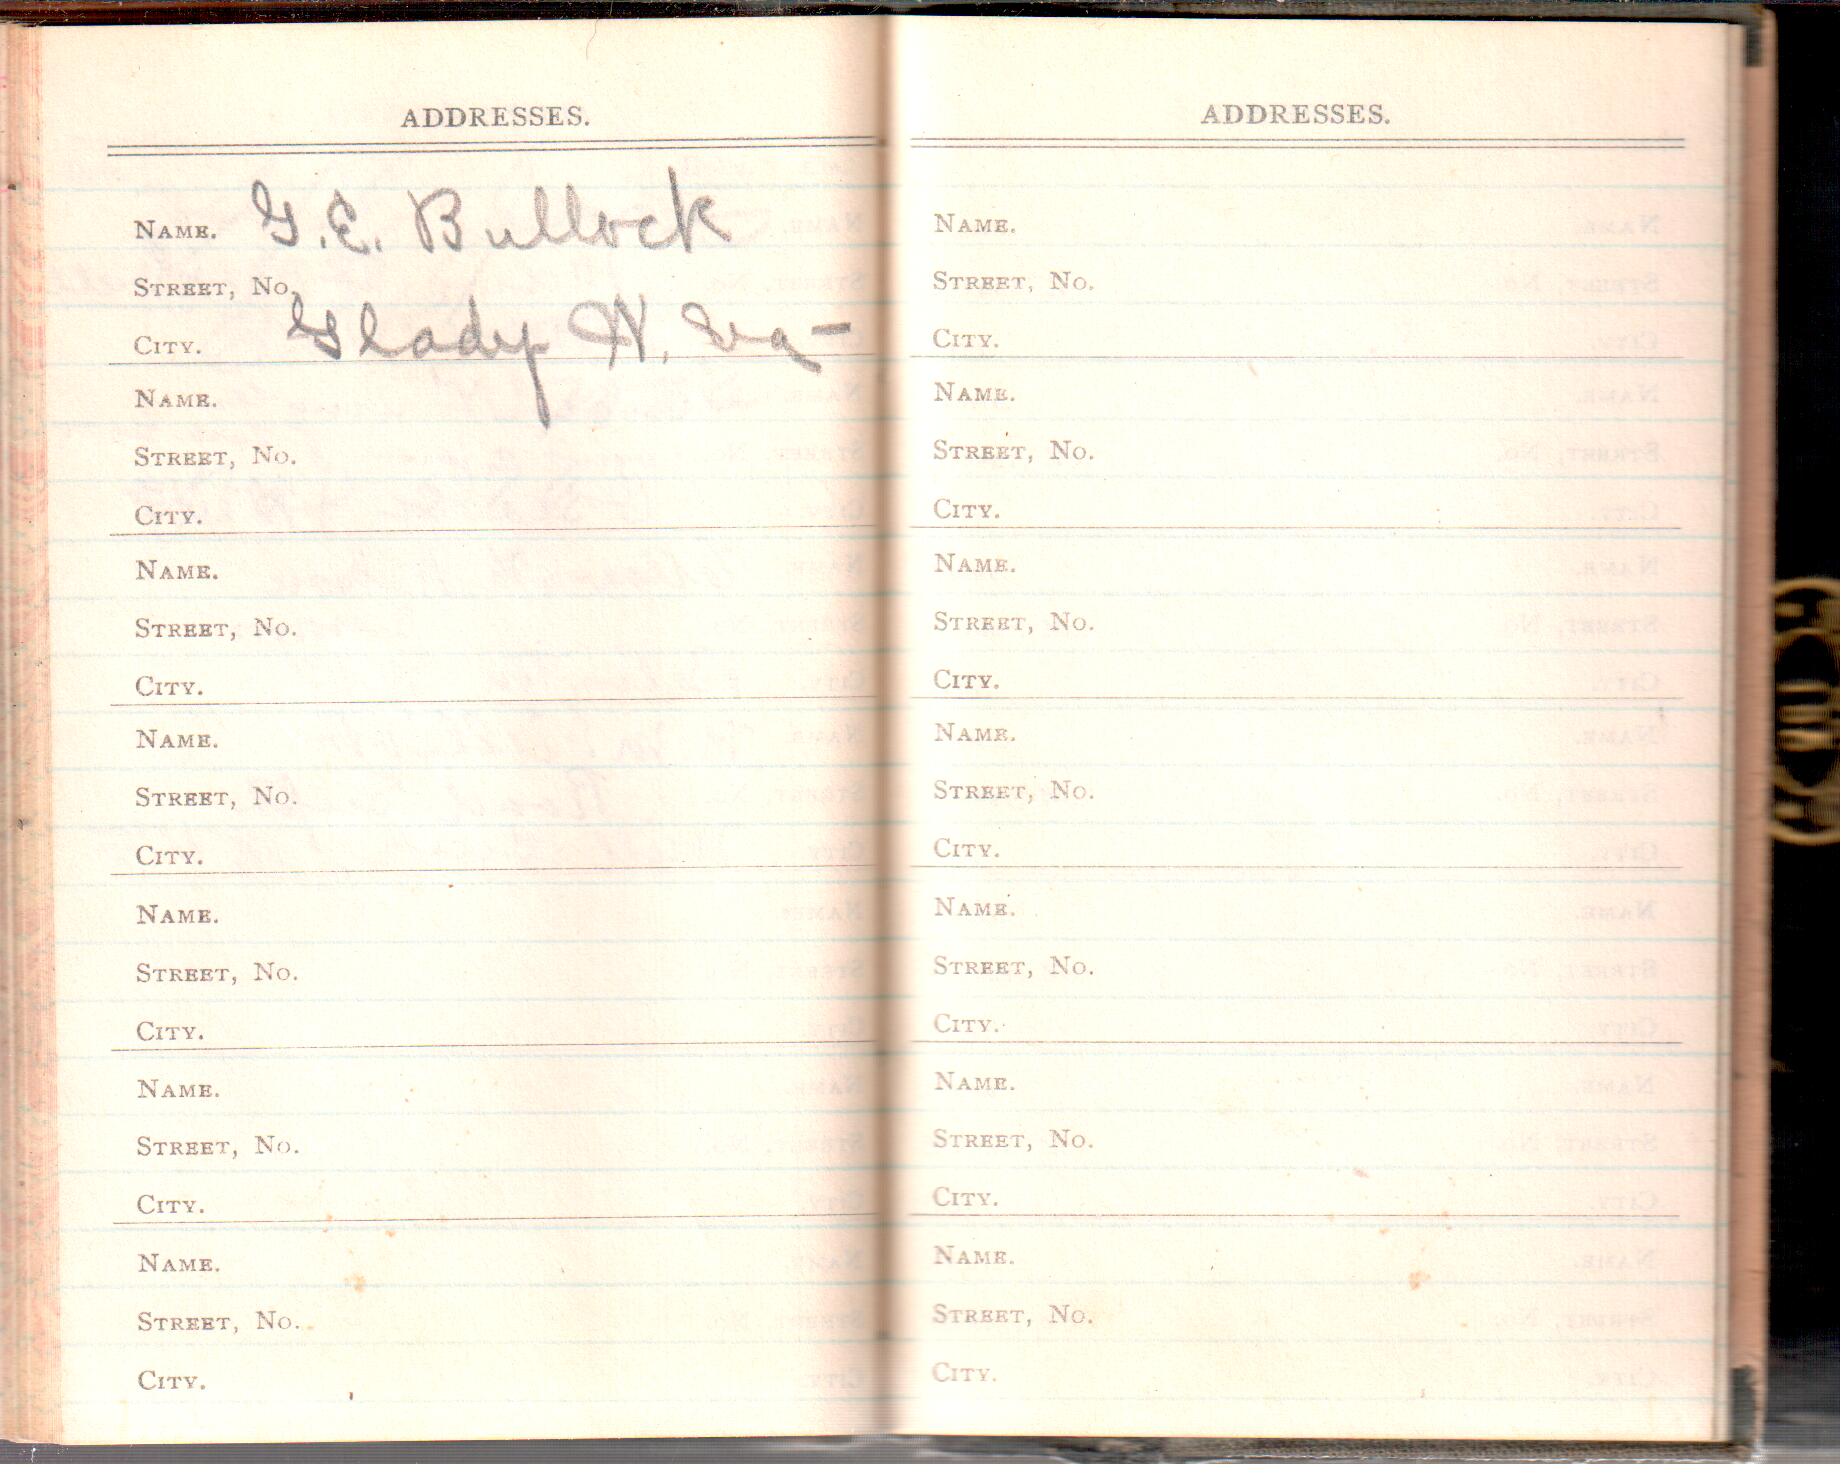 ADDRESSES.
NAME. G. E. Bullock
STREET, NO.
CITY. Glady W. Va-
NAME.
STREET, NO.
CITY.
NAME.
STREET, NO.
CITY.
NAME.
STREET, NO.
CITY.
NAME.
STREET, NO.
CITY.
NAME.
STREET, NO.
CITY.
NAME.
STREET, NO.
CITY.
ADDRESSES.
NAME.
STREET, NO.
CITY.
NAME.
STREET, NO.
CITY.
NAME.
STREET, NO.
CITY.
NAME.
STREET, NO.
CITY.
NAME.
STREET, NO.
CITY.
NAME.
STREET, NO.
CITY.
NAME.
STREET, NO.
CITY.